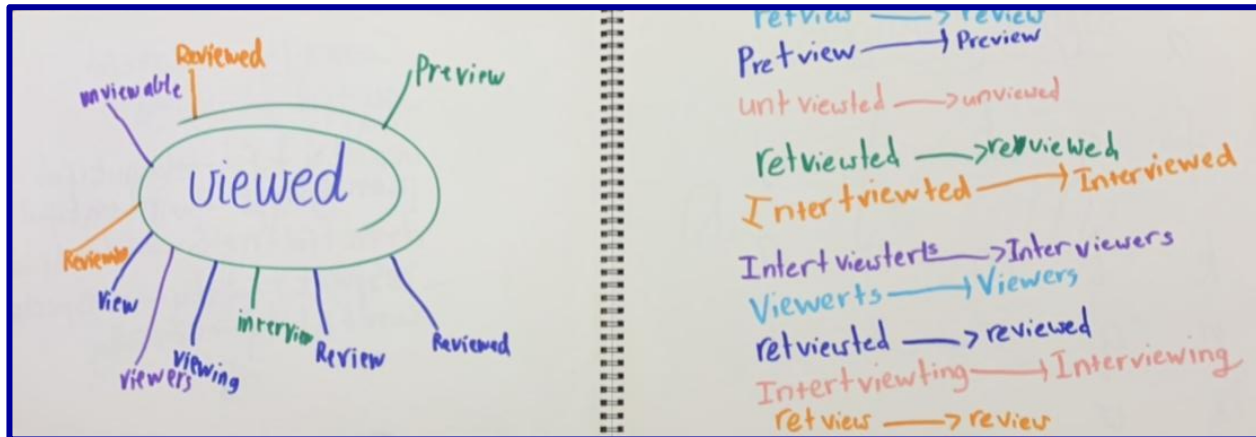 Reviewed
unviewable
Preview
viewed
View
viewers
viewing
interview
Review
Reviewed
re+view → review
Pre+view → Preview
un+view+ed → unviewed
re+view+ed → reviewed
Inter+view+ed → Interviewed
Inter+view+er+s → Interviewers
Viewer+s → Viewers
re+view+ed → reviewed
Inter+view+ing → Interviewing
re+view → review